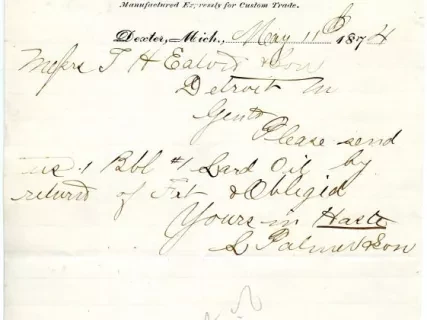 Manufactured Expressly for Custom Trade.
Dexter, Mich., May 11th 1874
Messrs T H Eaton & Son
Detroit M
Gents
Please send
us 1 Bbl #1 Lard Oil by
return of Frt & Obligid
Yours in Haste
L Palmer & Son